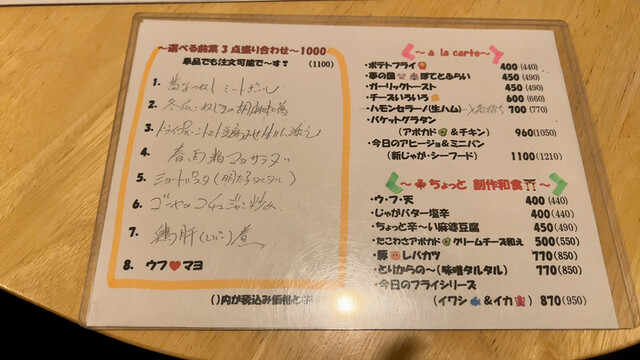 ~選べる前菜3点盛り合わせ~1000
単品でも注文可能で~す! (1100)
1. 昔なつかしミートボール
2.
3.
4. 春雨 マヨサラダ
5. ショートパスタ(明太子タルタル)
6. ゴーヤのコチュジャン炒め
7. 鶏肝(レバー)煮
8. ウフ❤マヨ
()内が税込み価格と
~ à la carte~
・ポテトフライ 400(440)
・夢の国 ぽてとふらい 450(490)
・ガーリックトースト 450(490)
・チーズいろいろ 600(660)
・ハモンセラーノ(生ハム) 700(770)
・バケットグラタン
(アボカド&チキン) 960(1050)
・今日のアヒージョ&ミニパン
(新じゃが・シーフード) 1100(1210)
~ ちょっと 創作和食 ~
・ウ・フ・天 400(440)
・じゃがバター塩辛 400(440)
・ちょっと辛~い麻婆豆腐 450(490)
・たこわさアボカド クリームチーズ和え 500(550)
・豚 レバカツ 770(850)
・とりからの~(味噌タルタル) 770(850)
・今日のフライシリーズ
(イワシ &イカ ) 870(950)